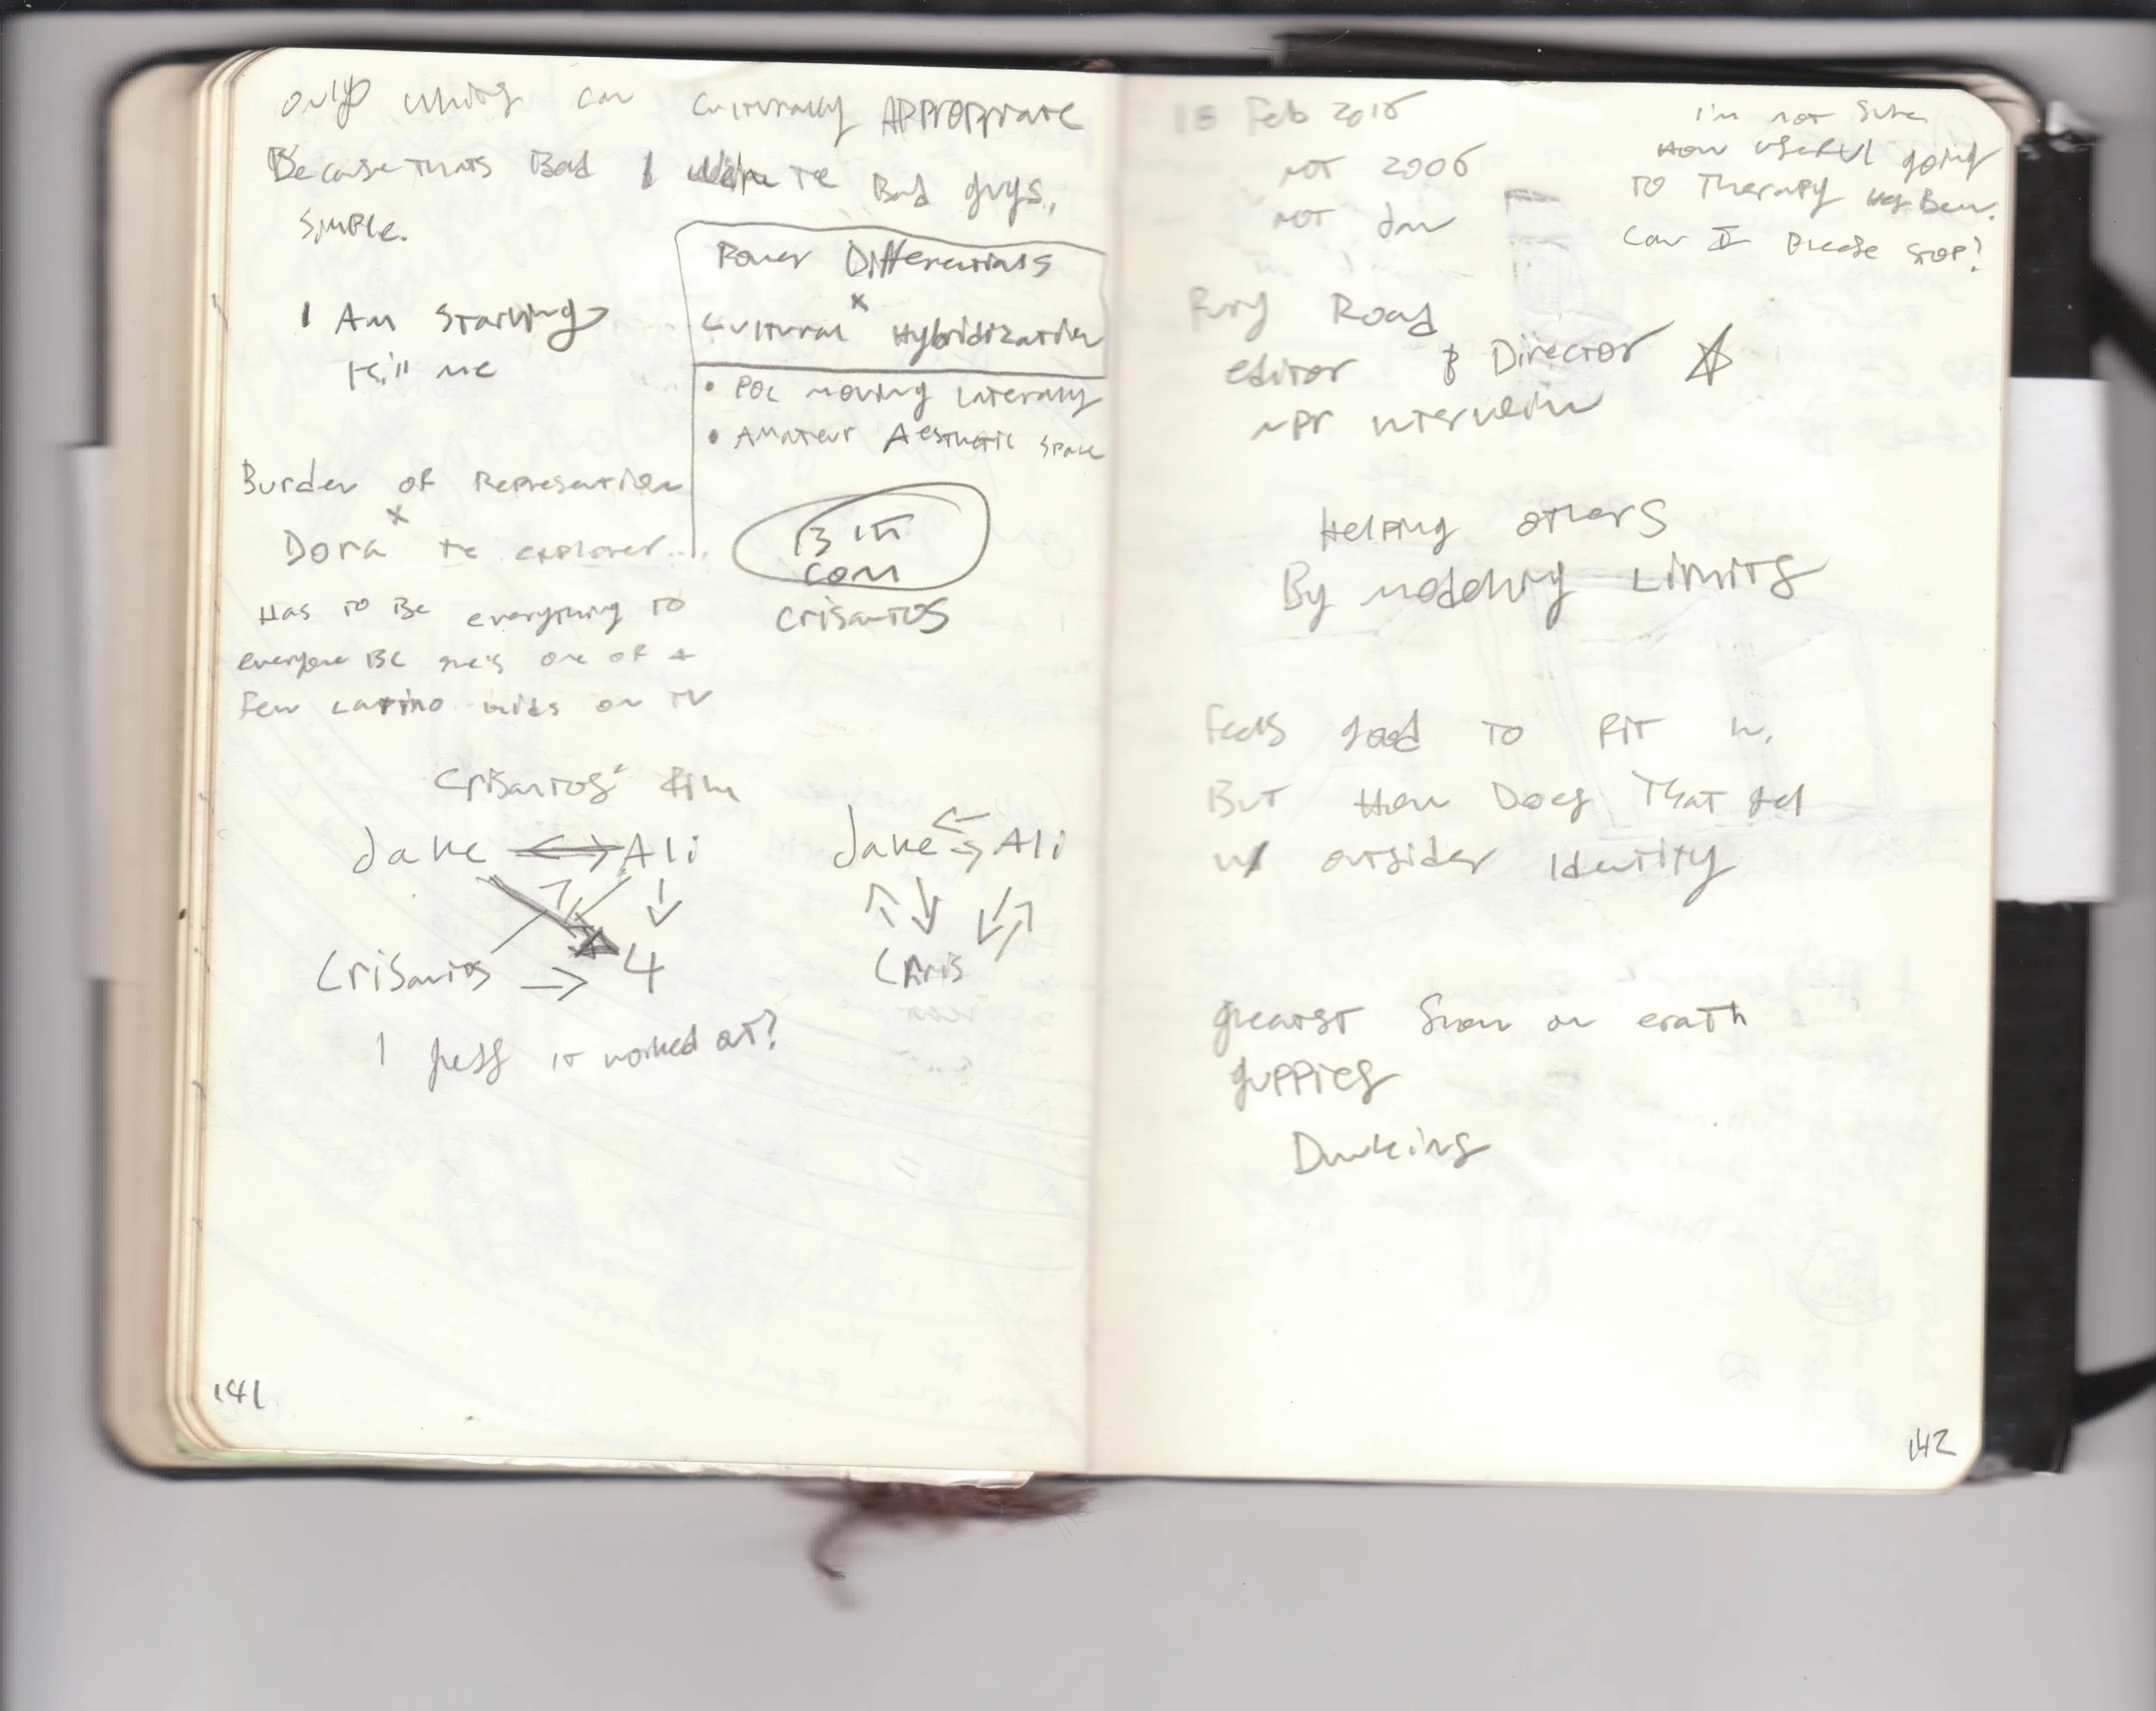 only whites can culturally Appropriate
Because thats Bad & white Te Bad guys,
simple.
I Am starving
kill me
Power Differentials
x
Cultural Hybridization
• POC moving Laterally
• Amateur Aesthetic space
Burden of Represention
x
Dora te explorer...
Has to Be everything to
everyone BC she's one of a
Few Latino kids on TV
13 in
com
crisantos
Crisantos' film
Jake Ali
Crisantos 4
Jake Ali
Chris
I guess it worked out?
141
15 Feb 2016
not 2006
not Jan
I'm not sure
How useful going
To Therapy Has Been.
Can I please stop?
Fury Road
editor & Director
NPR interview
Helping others
By modeling Limits
Feels good to fit in.
But How Does That gel
w/ outsider Identity
greatst Show on erath
guppies
Dunking
142